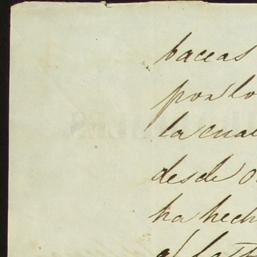 baceas
por lo
la cual
desde
ha hech